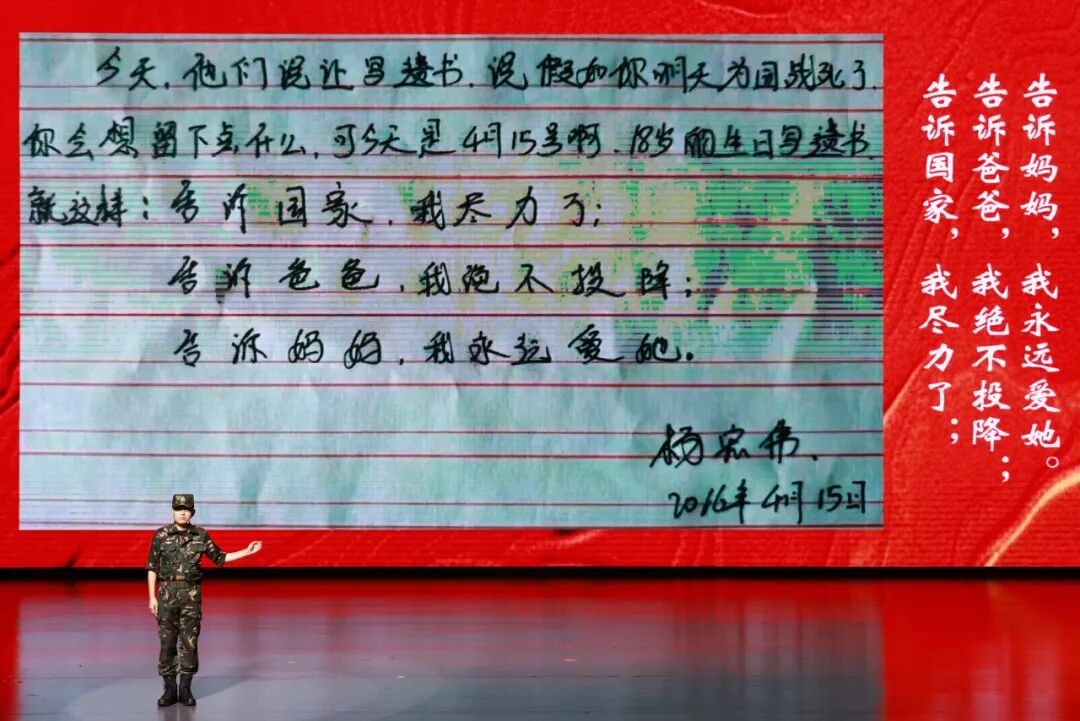 今天,他们说让写遗书,说假如你明天为国战死了,
你会想留下点什么,可今天是4月15号啊,18岁的生日写遗书,
就这样:告诉国家,我尽力了;
告诉爸爸,我绝不投降;
告诉妈妈,我永远爱她。
杨宏伟.
2016年4月15日
告诉妈妈, 我永远爱她。
告诉爸爸, 我绝不投降;
告诉国家, 我尽力了;